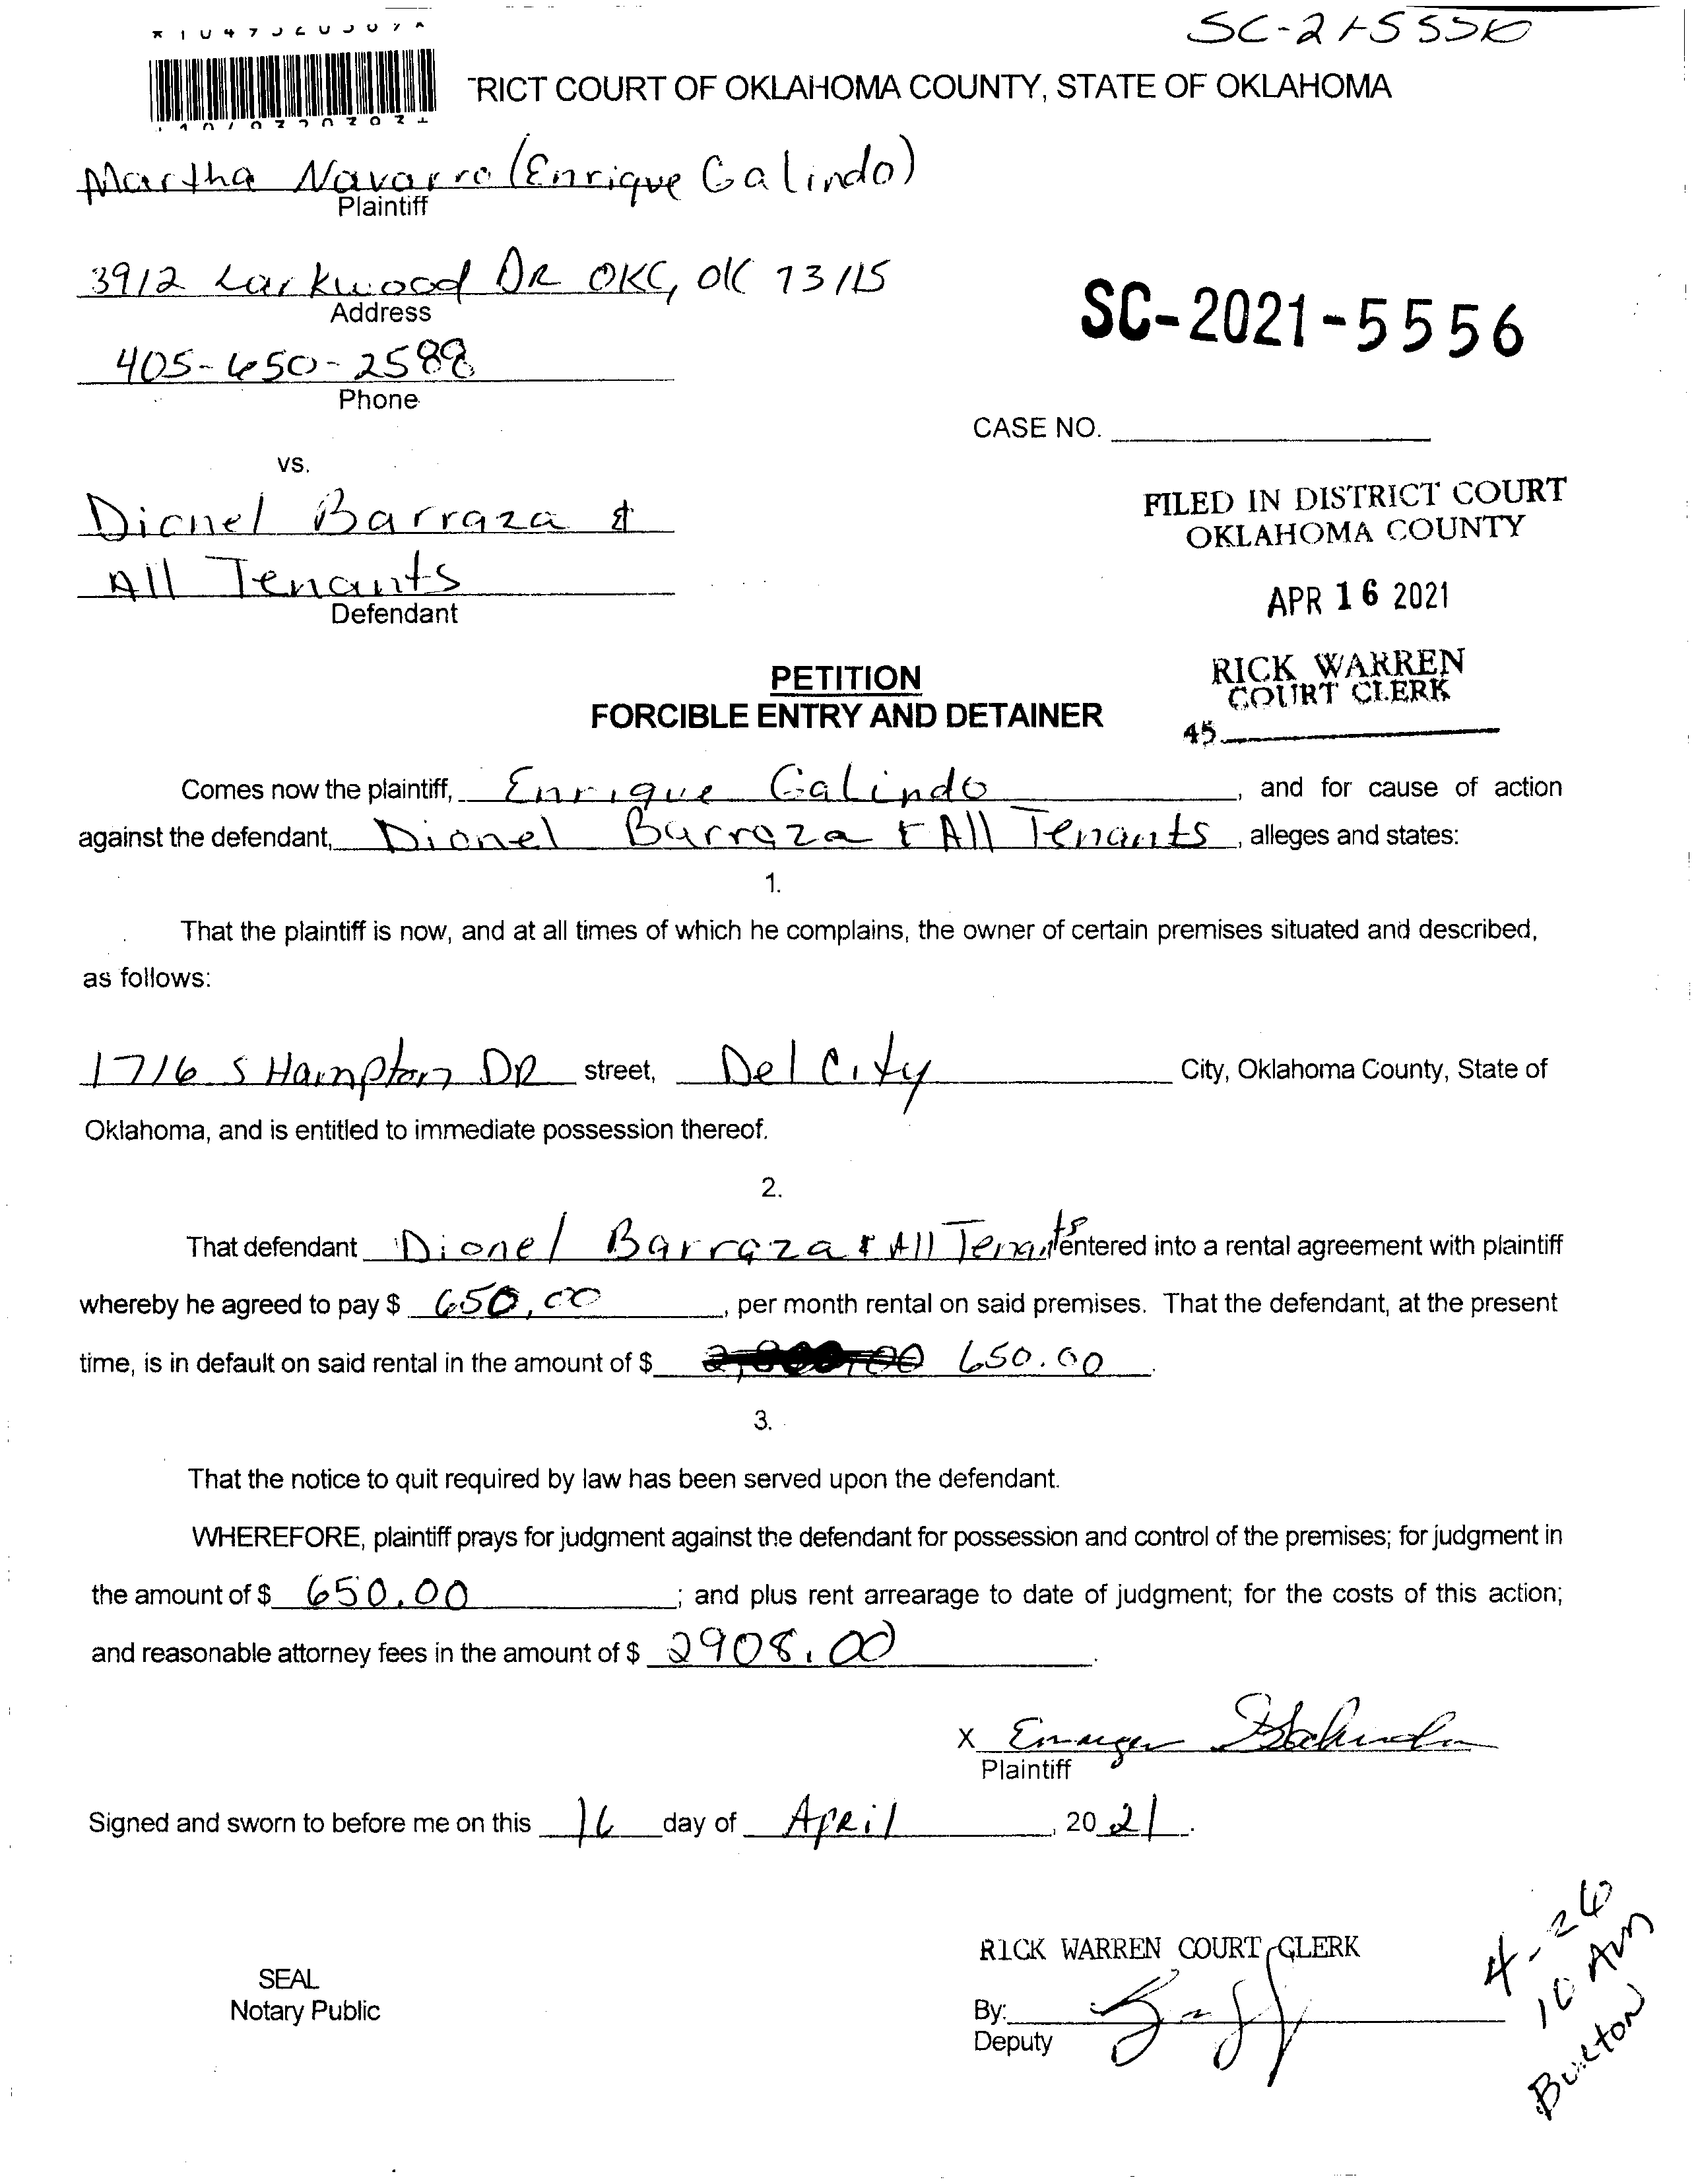 SC-21-5556
RICT COURT OF OKLAHOMA COUNTY, STATE OF OKLAHOMA
Martha Navarro (Enrique Galindo)
Plaintiff
3912 Larkwood DR OKC, OK 73115
Address
405-650-2588
Phone
SC-2021-5556
CASE NO.
vs.
Dionel Barraza &
All Tenants
Defendant
FILED IN DISTRICT COURT
OKLAHOMA COUNTY
APR 16 2021
RICK WARREN
COURT CLERK
45
PETITION
FORCIBLE ENTRY AND DETAINER
Comes now the plaintiff, Enrique Galindo, and for cause of action
against the defendant, Dionel Barraza & All Tenants, alleges and states:
1.
That the plaintiff is now, and at all times of which he complains, the owner of certain premises situated and described,
as follows:
1716 S Hampton DR street, Del City City, Oklahoma County, State of
Oklahoma, and is entitled to immediate possession thereof.
2.
That defendant Dionel Barraza & All Tenants entered into a rental agreement with plaintiff
whereby he agreed to pay $ 650.00, per month rental on said premises. That the defendant, at the present
time, is in default on said rental in the amount of $ 650.00.
3.
That the notice to quit required by law has been served upon the defendant.
WHEREFORE, plaintiff prays for judgment against the defendant for possession and control of the premises; for judgment in
the amount of $ 650.00; and plus rent arrearage to date of judgment; for the costs of this action;
and reasonable attorney fees in the amount of $ 2908.00.
X
Plaintiff
Signed and sworn to before me on this 16 day of April, 2021.
RICK WARREN COURT CLERK
SEAL
Notary Public
By:
Deputy
4-26
10 AM
Burton